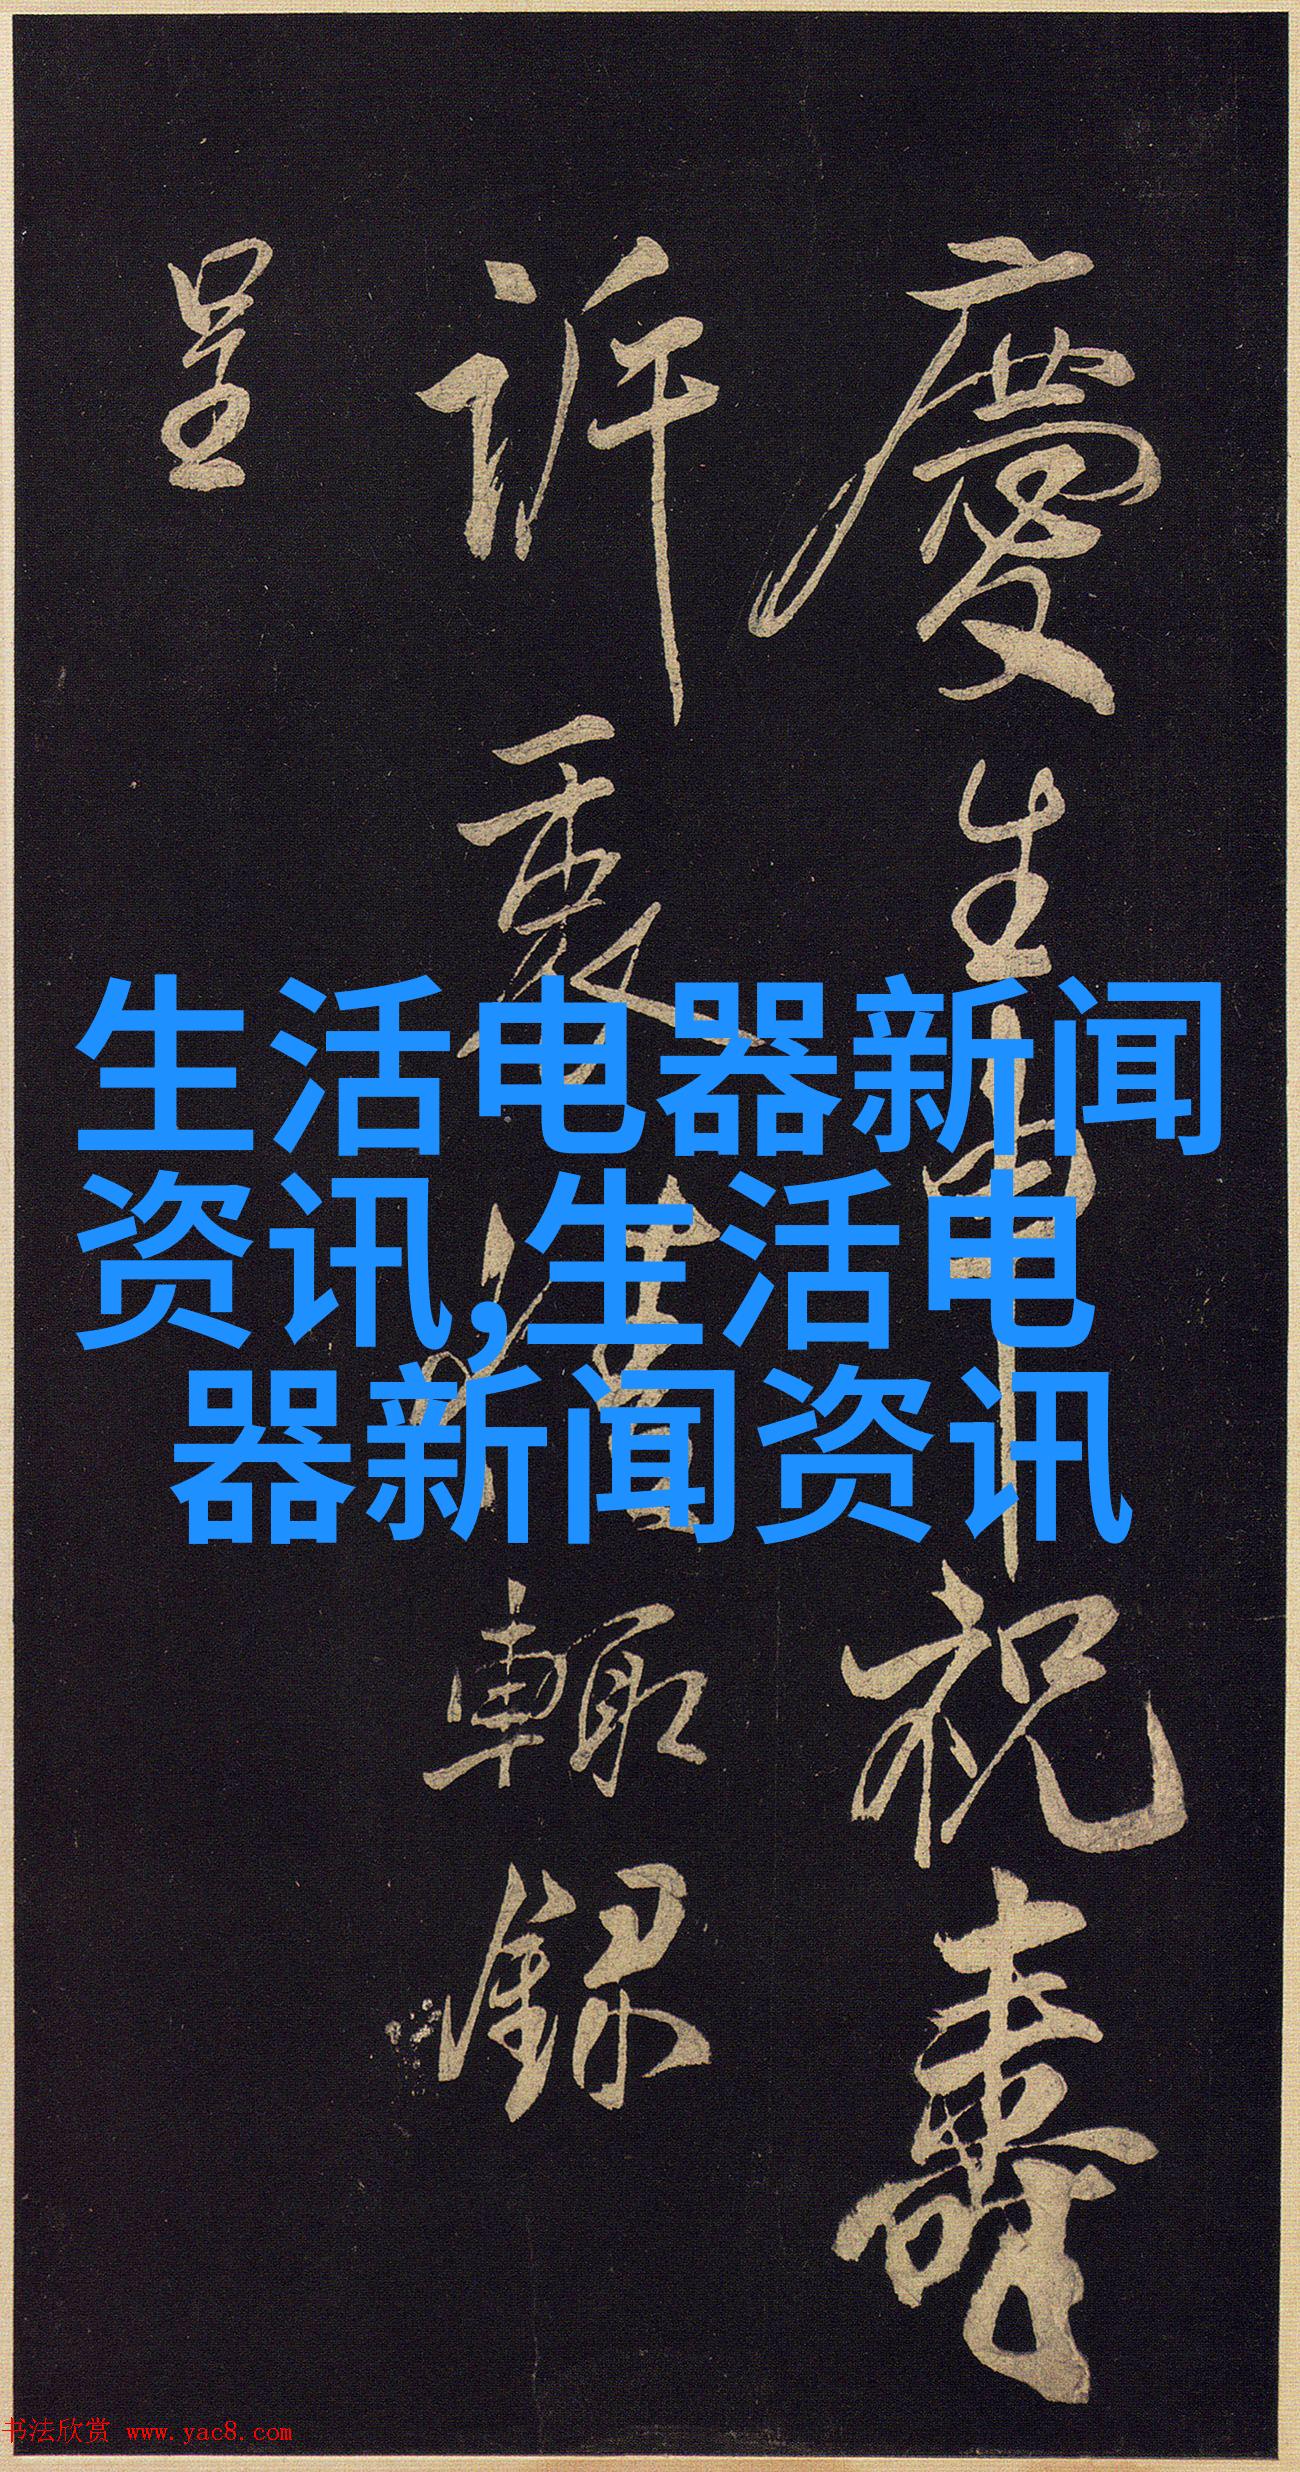 慶生申祝壽
訴裏
輙錄
呈
生活电器新闻
资讯,生活电
器新闻资讯
书法欣赏 www.yac8.com